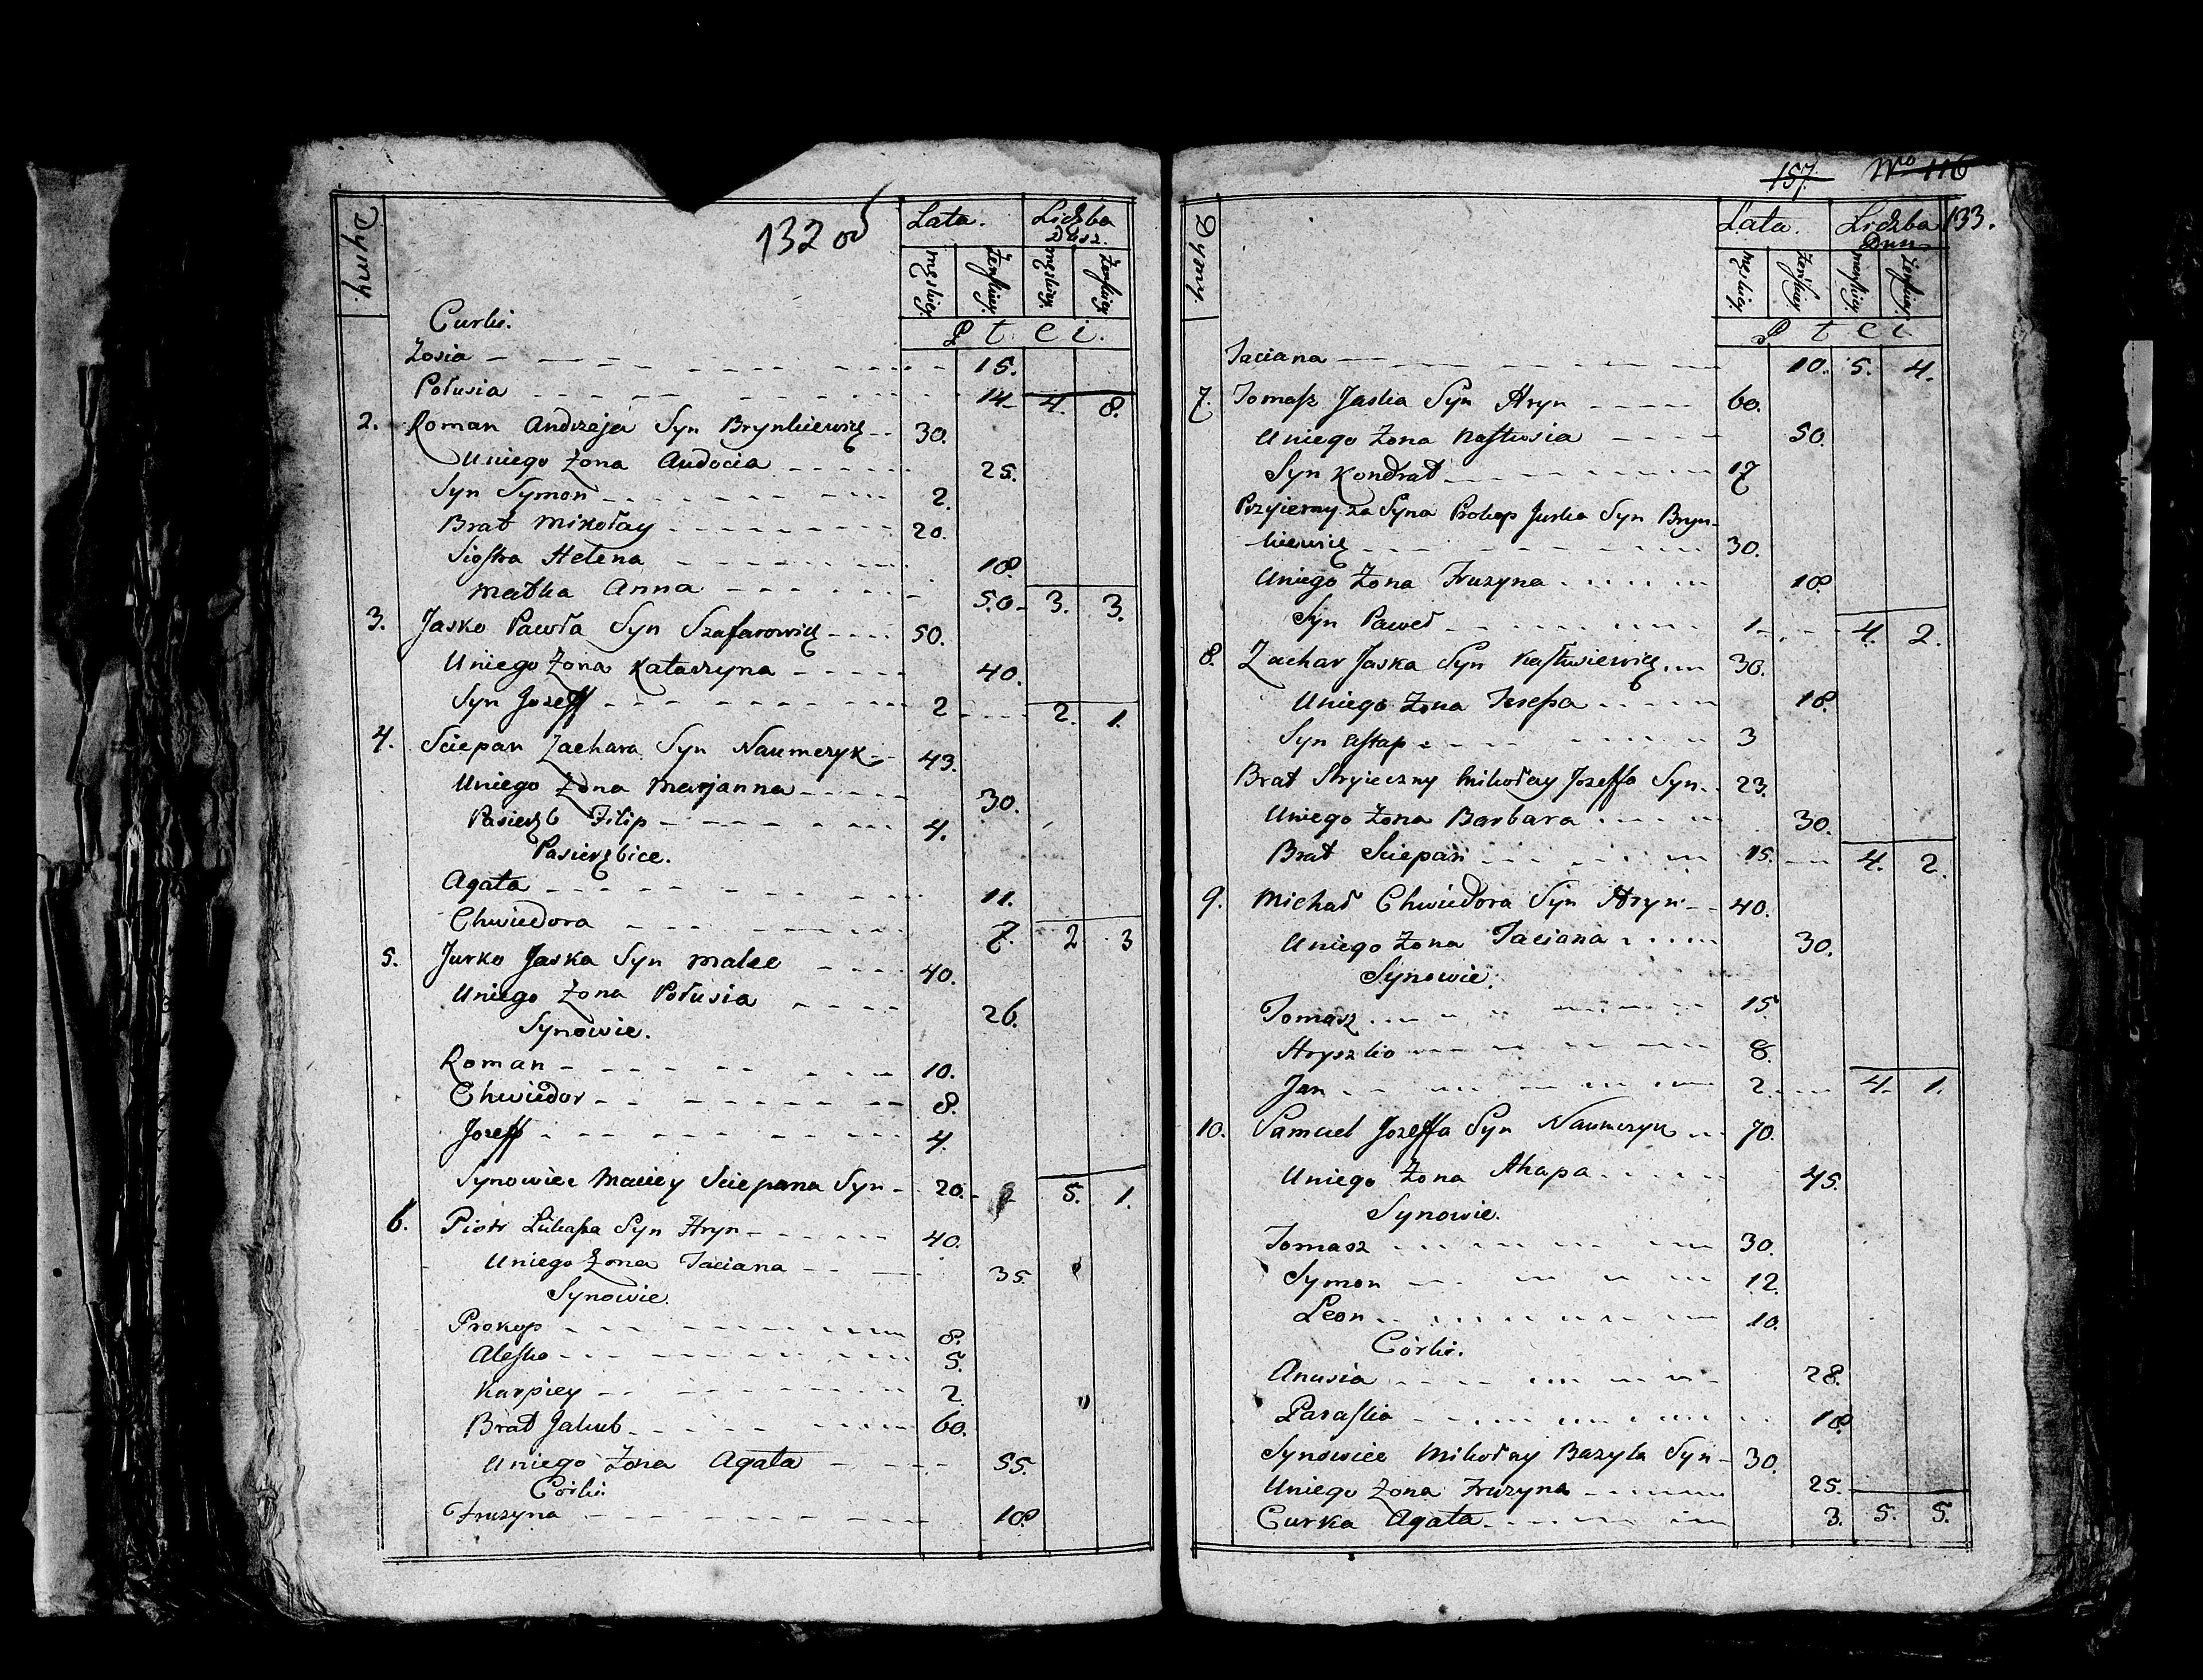 132 об
Dymy.
Lata.
Liczba Dusz.
męskiey
Żeńskiey.
męskiey
Żeńskiey
P t c i.
Curki.
Zosia 15.
Połusia 14. 4. 8.
2. Roman Andrzeja Syn Brynkiewicz 30.
Uniego Żona Audocia 25.
Syn Symon 2.
Brat Mikołay 20.
Siostra Helena 18.
Matka Anna 50. 3. 3.
3. Jasko Pawła Syn Szafarowicz 50.
Uniego Żona Katarzyna 40.
Syn Jozeff 2 2. 1.
4. Sciepan Zachara Syn Naumczyk 43.
Uniego Żona Marjanna 30.
Pasierzb Filip 4.
Pasierzbice.
Agata 11.
Chwiedora 7. 2 3
5. Jurko Jaska Syn Malec 40.
Uniego Żona Połusia 26.
Synowie.
Roman 10.
Chwiedor 8.
Jozeff 4.
Synowiec Maciey Sciepana Syn 20. 5. 1.
6. Piotr Łukasza Syn Hryn 40.
Uniego Żona Taciana 35.
Synowie.
Prokop 8.
Alesko 5.
Karpiey 2.
Brat Jakub 60.
Uniego Żona Agata 55.
Córki.
Fruzyna 18
157. Nro 116
133.
Dymy
Lata.
Liczba Dusz
męskiey
Żeńskiey
męskiey
Żeńskiey
P t c i
Taciana 10. 5. 4.
7. Tomasz Jaska Syn Hryn 60.
Uniego Żona Nastusia 50.
Syn Kondrat 17
Przyiemny za Syna Prokop Jurka Syn Bryn-
kiewicz 30.
Uniego Żona Fruzyna 18.
Syn Paweł 1 4. 2.
8. Zachar Jaska Syn Kastusiewicz 30.
Uniego Żona Teressa 18.
Syn Astap 3
Brat Stryieczny Mikołay Jozeffa Syn 23.
Uniego Żona Barbara 30.
Brat Sciepan 15. 4. 2.
9. Michał Chwiedora Syn Hryn 40.
Uniego Żona Taciana 30.
Synowie.
Tomasz 15.
Hryszko 8.
Jan 2. 4. 1.
10. Samuel Jozeffa Syn Naumczyk 70.
Uniego Żona Ahapa 45.
Synowie.
Tomasz 30.
Symon 12.
Leon 10.
Córki.
Anusia 28.
Paraska 18
Synowiec Mikołay Bazyla Syn 30.
Uniego Żona Fruzyna 25.
Curka Agata 3. 5. 5.